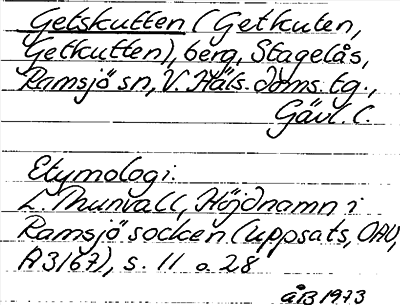 Getskutten (Getkuten,
Getkutten), berg, Stagelås,
Ramsjö sn, V. Häls. doms. tg.,
Gävl. l.
Etymologi:
L. Thunvall, Höjdnamn i
Ramsjö socken (uppsats, OAU,
A 3167), s. 11 o. 28
åB 1973